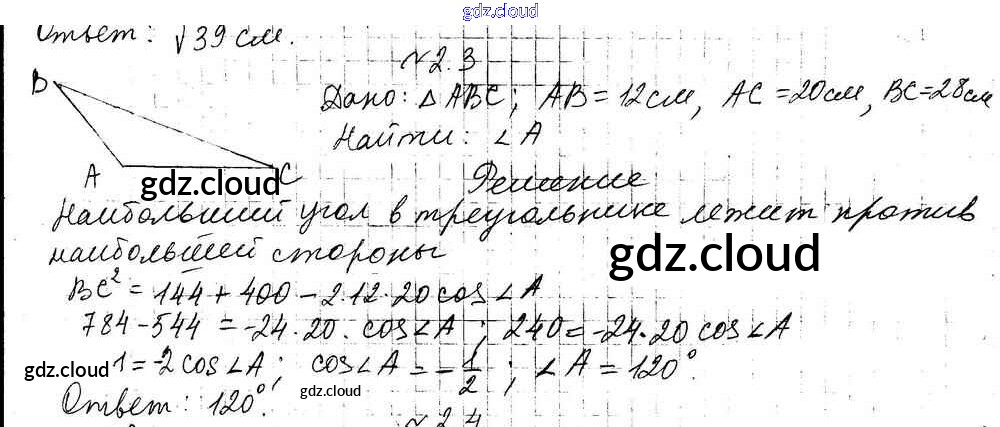 gdz.cloud
Ответ: √39 см.
№2.3
B
Дано: △ABC; AB=12см, AC=20см, BC=28см
Найти: ∠A
A
C
gdz.cloud
Решение
Наибольший угол в треугольнике лежит против
наибольшей стороны
gdz.cloud
BC²=144+400-2·12·20cos∠A
784-544=-24·20·cos∠A; 240=-24·20cos∠A
gdz.cloud
1=-2cos∠A; cos∠A=-1/2; ∠A=120°.
gdz.cloud
Ответ: 120°.
№2.4